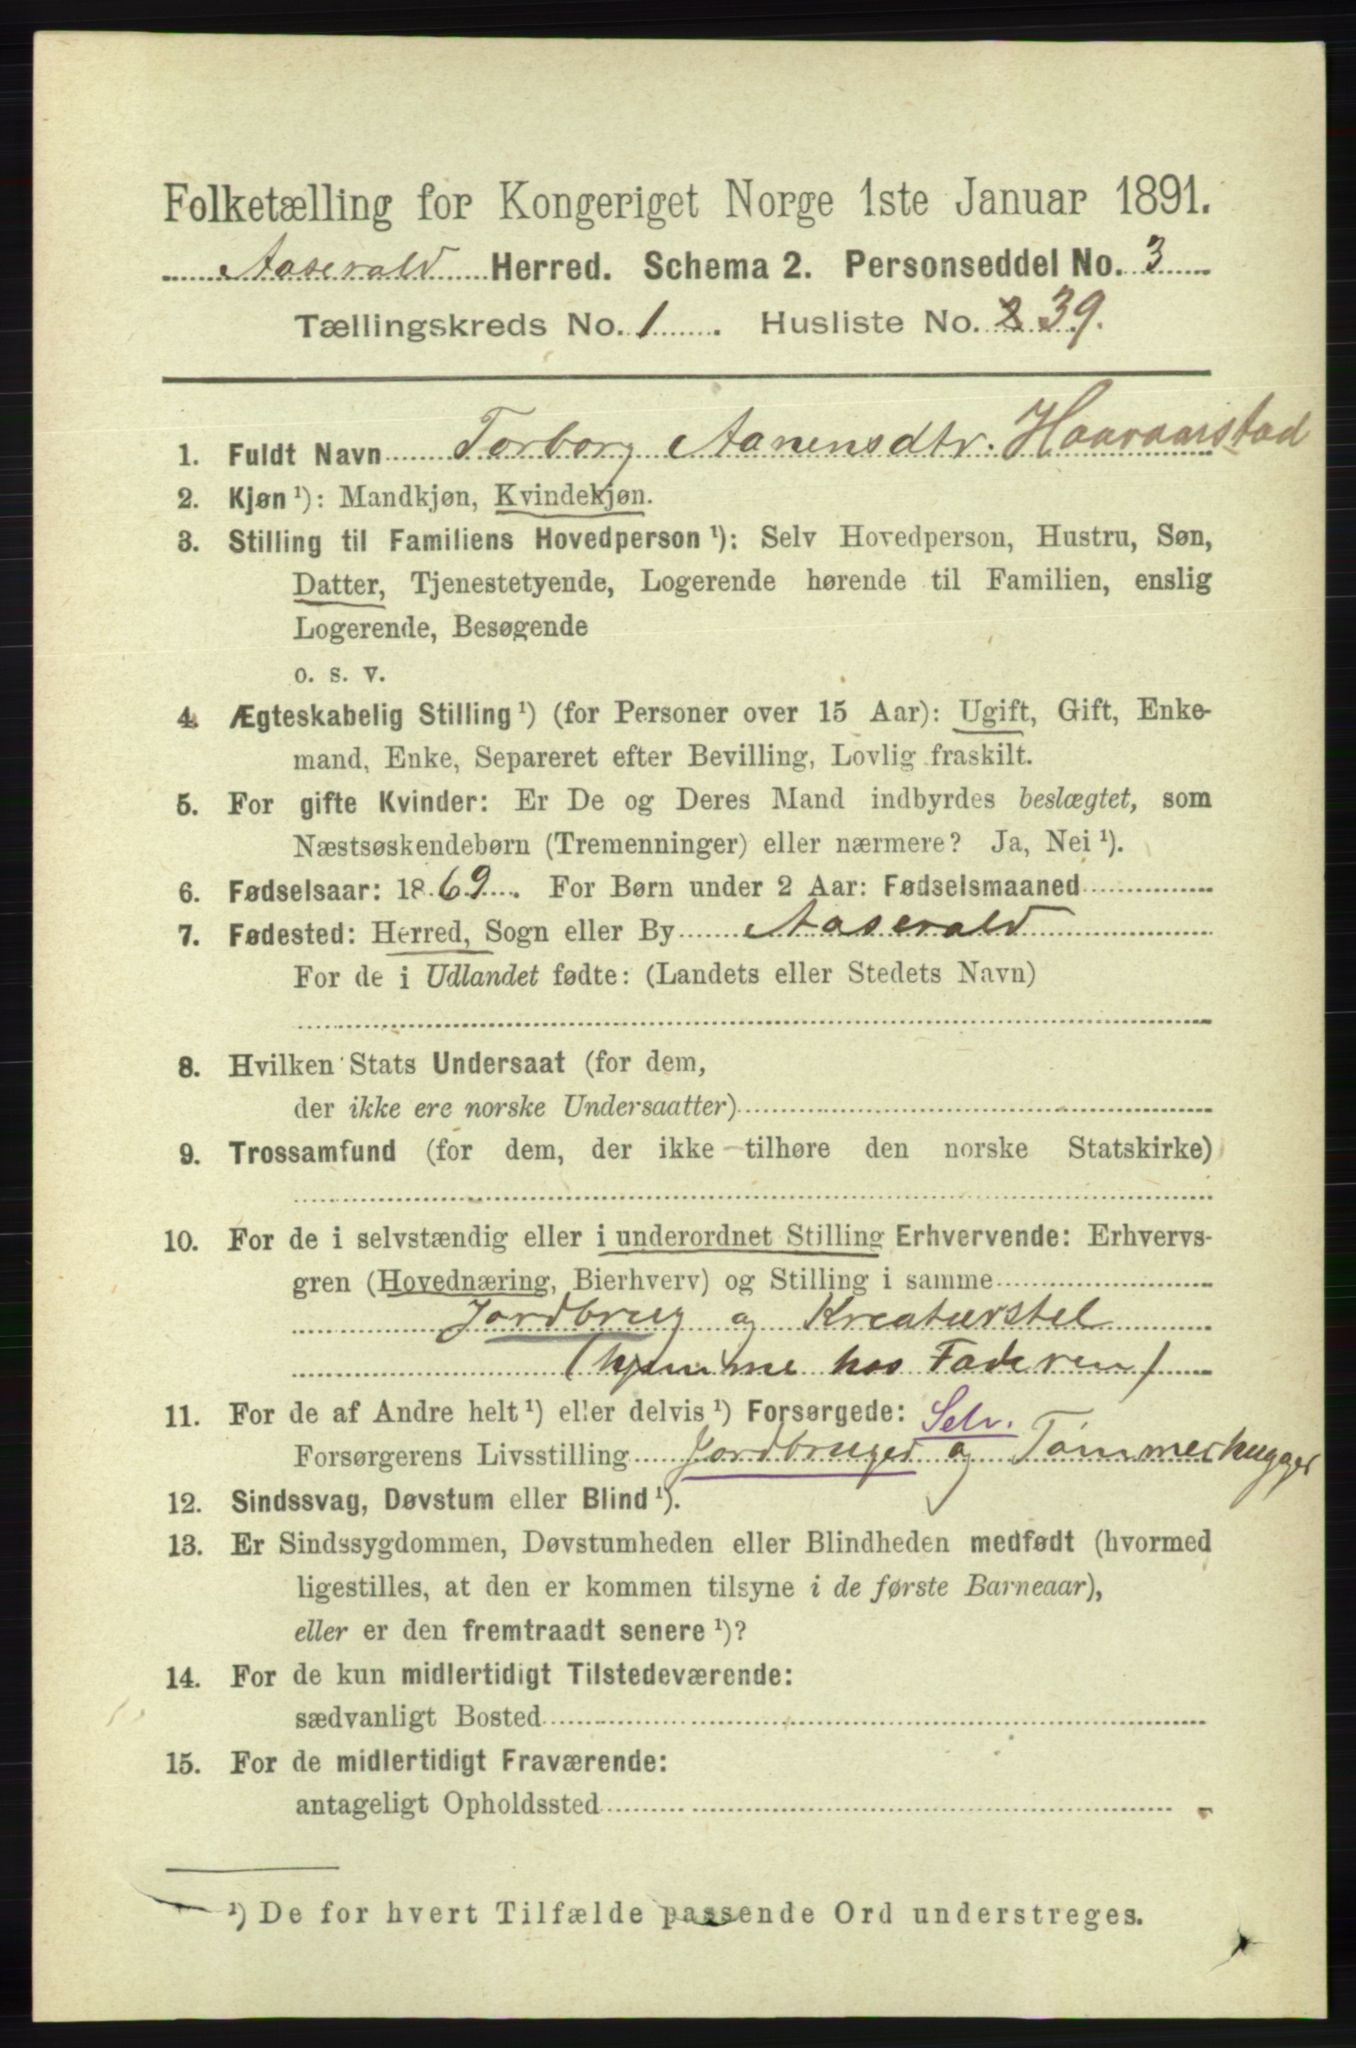 Folketælling for Kongeriget Norge 1ste Januar 1891.
Aaserald Herred. Schema 2. Personseddel No. 3
Tællingskreds No. 1. Husliste No. 2 39.
1. Fuldt Navn Torborg Aanensdtr. Haavaarstad
2. Kjøn ¹): Mandkjøn, Kvindekjøn.
3. Stilling til Familiens Hovedperson ¹): Selv Hovedperson, Hustru, Søn,
Datter, Tjenestetyende, Logerende hørende til Familien, enslig
Logerende, Besøgende
o. s. v.
4. Ægteskabelig Stilling ¹) (for Personer over 15 Aar): Ugift, Gift, Enke-
mand, Enke, Separeret efter Bevilling, Lovlig fraskilt.
5. For gifte Kvinder: Er De og Deres Mand indbyrdes beslægtet, som
Næstsøskendebørn (Tremenninger) eller nærmere? Ja, Nei ¹).
6. Fødselsaar: 1869. For Børn under 2 Aar: Fødselsmaaned
7. Fødested: Herred, Sogn eller By Aaserald
For de i Udlandet fødte: (Landets eller Stedets Navn)
8. Hvilken Stats Undersaat (for dem,
der ikke ere norske Undersaatter)
9. Trossamfund (for dem, der ikke tilhøre den norske Statskirke)
10. For de i selvstændig eller i underordnet Stilling Erhvervende: Erhvervs-
gren (Hovednæring, Bierhverv) og Stilling i samme
Jordbrug og Kreaturstel
(hjemme hos Faderen)
11. For de af Andre helt ¹) eller delvis ¹) Forsørgede: Selv.
Forsørgerens Livsstilling Jordbruger og Tømmerhugger
12. Sindssvag, Døvstum eller Blind ¹).
13. Er Sindssygdommen, Døvstumheden eller Blindheden medfødt (hvormed
ligestilles, at den er kommen tilsyne i de første Barneaar),
eller er den fremtraadt senere ¹)?
14. For de kun midlertidigt Tilstedeværende:
sædvanligt Bosted
15. For de midlertidigt Fraværende:
antageligt Opholdssted
¹) De for hvert Tilfælde passende Ord understreges.